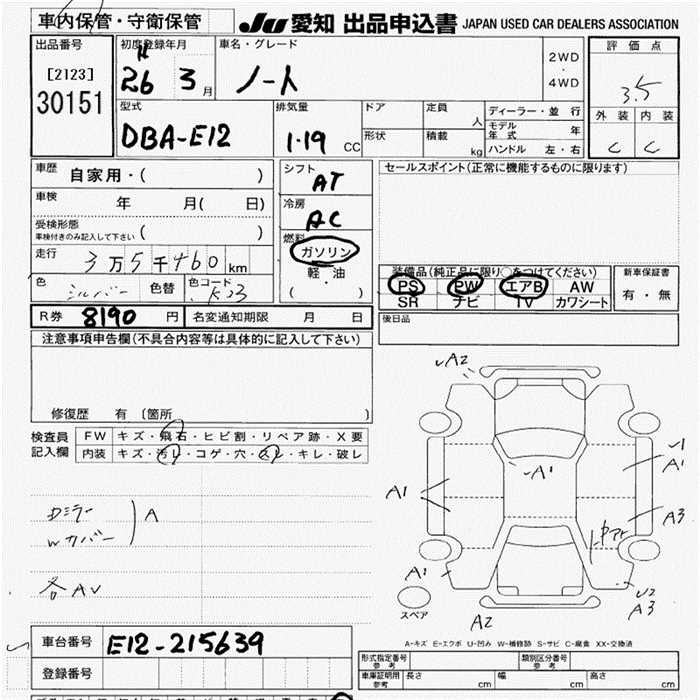 車内保管・守衛保管
JU 愛知 出品申込書 JAPAN USED CAR DEALERS ASSOCIATION
出品番号
[2123]
30151
初度登録年月
H
26 3月
車名・グレード
ノート
2WD
・
4WD
評価点
3.5
外装 内装
C C
型式
DBA-E12
排気量
1.19 CC
ドア
形状
定員 人
積載 kg
ディーラー・並行
モデル年式 年
ハンドル 左・右
車歴 自家用・( )
車検 年 月( 日)
受検形態
車検付きのみ記入して下さい ( )
走行 3万5千460km
色 シルバー 色替 色コード K23
シフト AT
冷房 AC
燃料
ガソリン
軽・油
( )
セールスポイント(正常に機能するものに限ります)
装備品(純正品に限り○をつけてください)
PS PW エアB AW
SR ナビ TV カワシート
新車保証書
有・無
R券 8190 円 名変通知期限 月 日
後日品
注意事項申告欄(不具合内容等は具体的に記入して下さい)
修復歴 有 (箇所 )
検査員記入欄
FW キズ・飛石・ヒビ割・リペア跡・X要
内装 キズ・汚レ・コゲ・穴・スレ・キレ・破レ
Dミラー
Wカバー
A
各AV
A2
A1
A1
A1
A3
A1
A2
U2
A3
スペア
A-キズ E-エクボ U-凹み W-補修跡 S-サビ C-腐食 XX-交換済
車台番号 E12-215639
登録番号
形式指定番号
参考
類別区分番号
参考
車庫証明用
参考
長さ cm 幅 cm 高さ cm